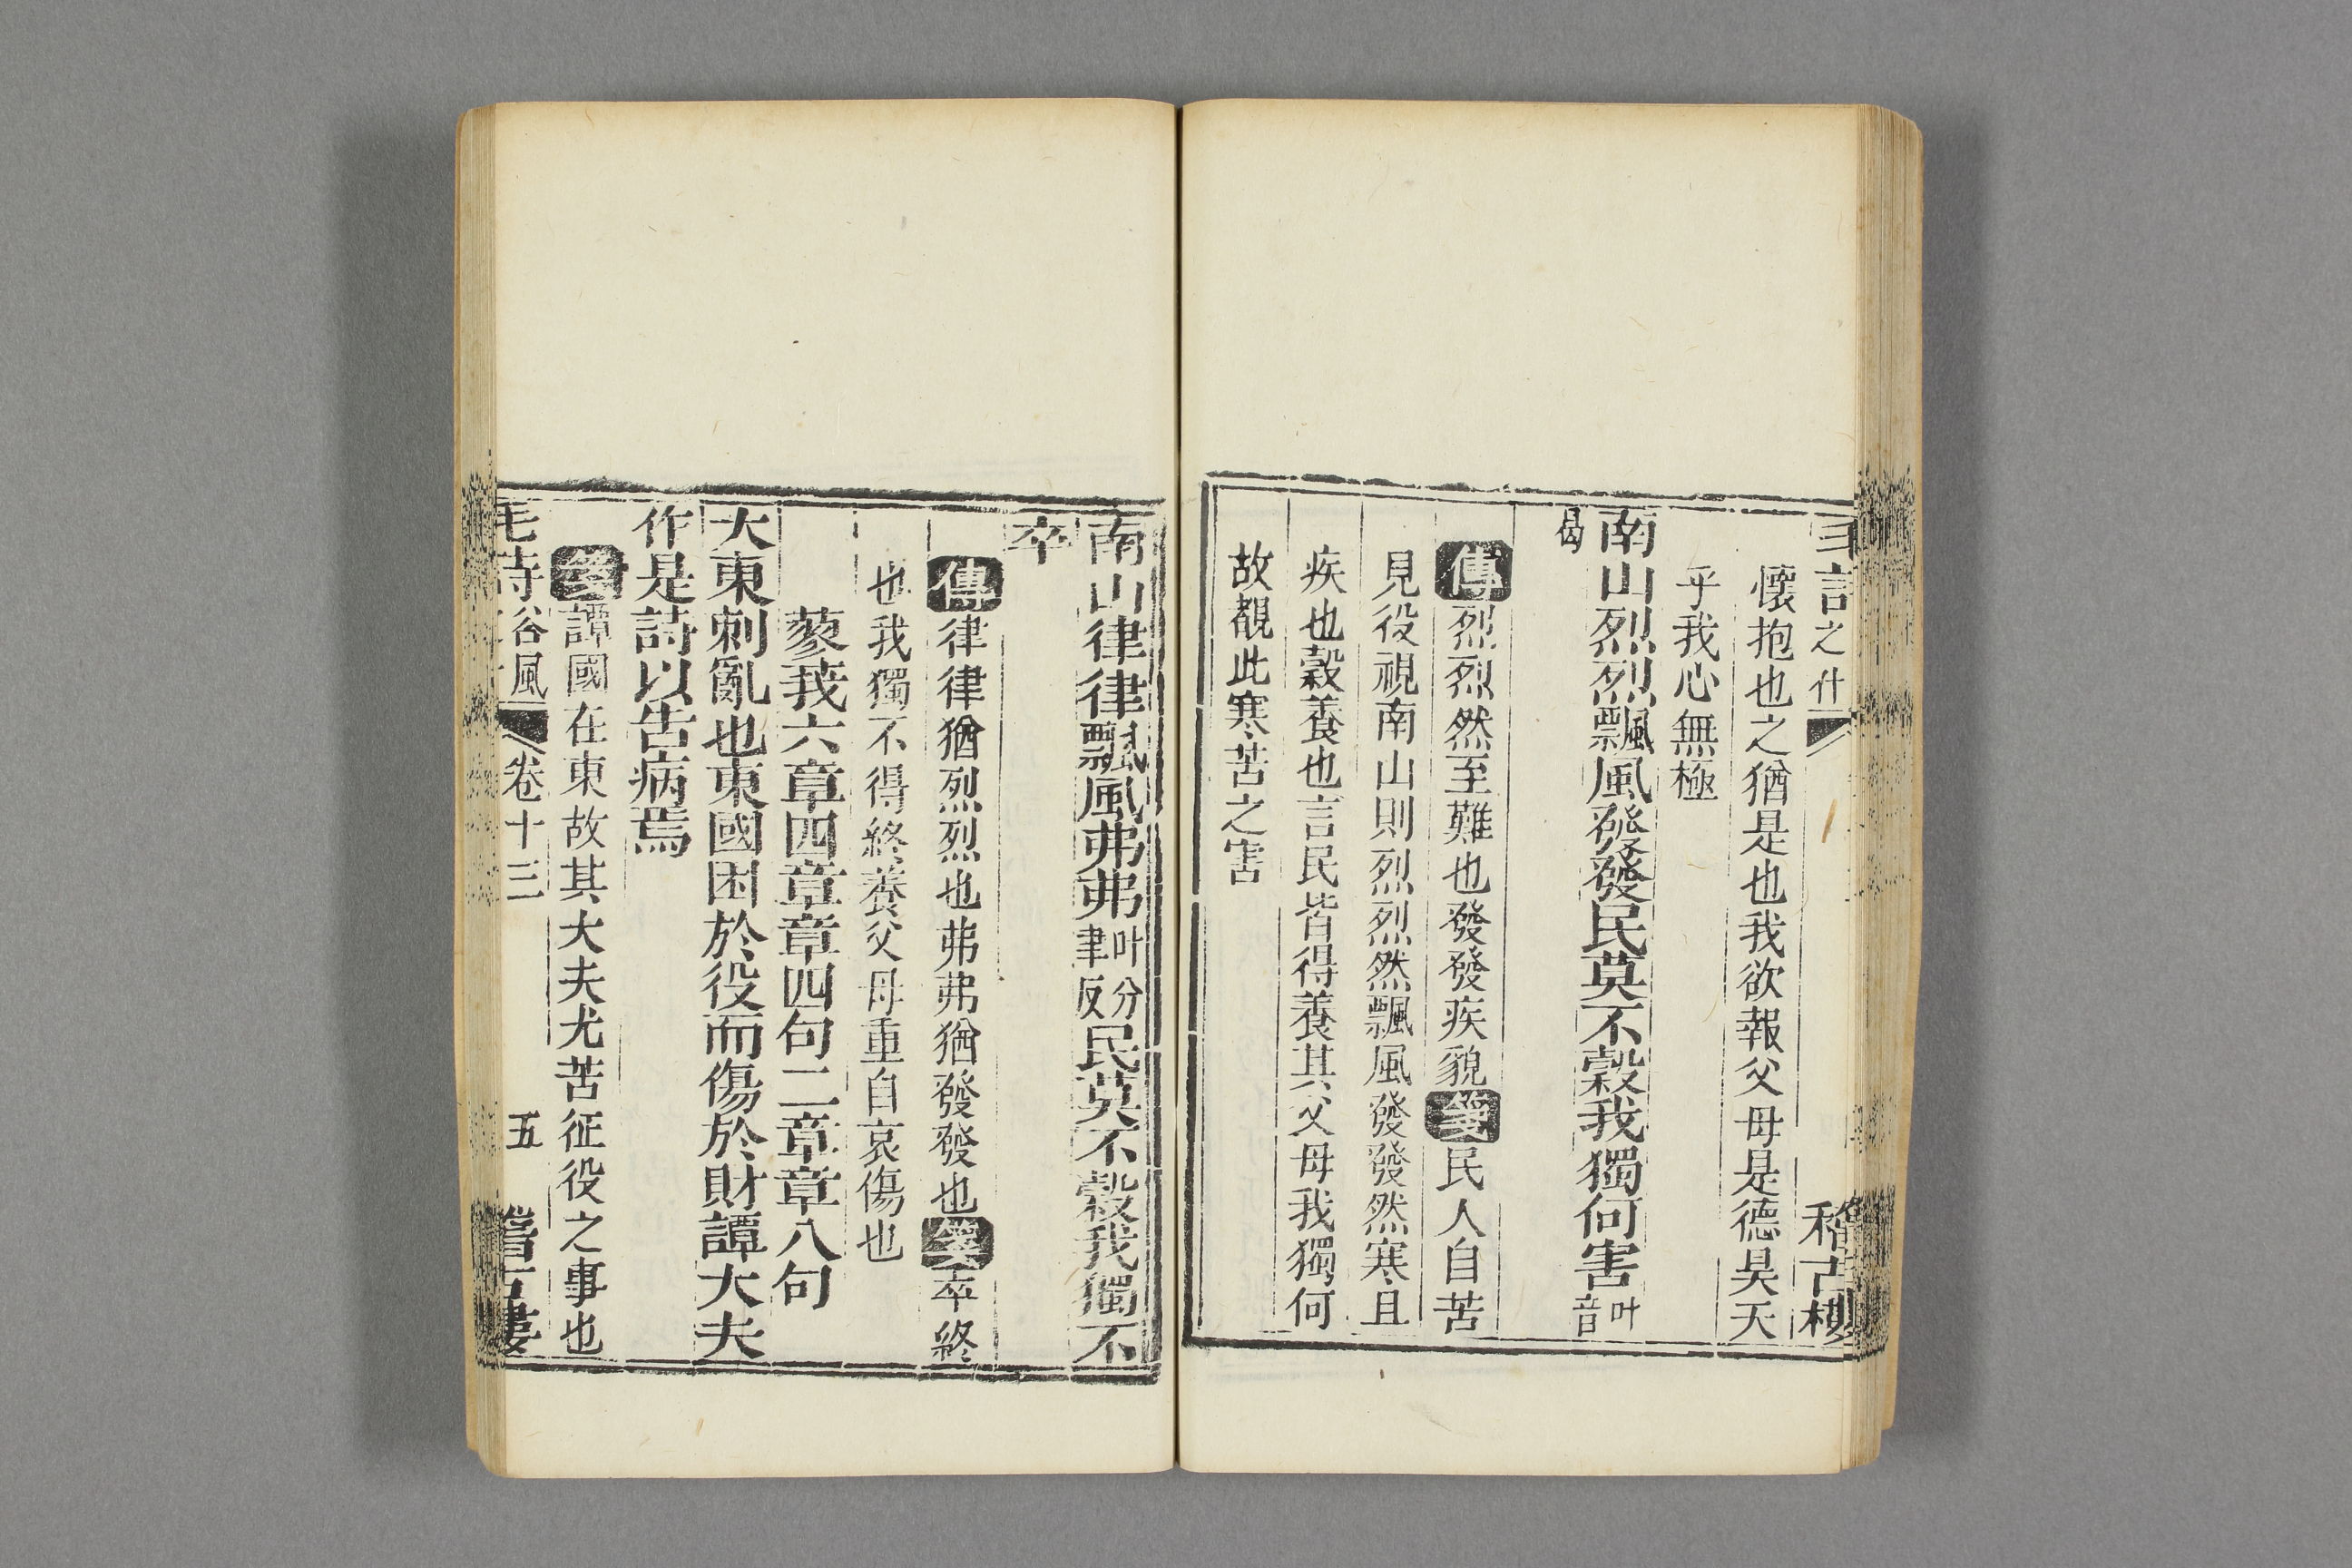 之什 稽古樓
懷抱也之猶是也我欲報父母是德昊天
乎我心無極
南山烈烈飄風發發民莫不穀我獨何害叶音
曷
傳烈烈然至難也發發疾貌箋民人自苦
見役視南山則烈烈然飄風發發然寒且
疾也穀養也言民皆得養其父母我獨何
故覩此寒苦之害
南山律律飄風弗弗叶分聿反民莫不穀我獨不
卒
傳律律猶烈烈也弗弗猶發發也箋卒終
也我獨不得終養父母重自哀傷也
蓼莪六章四章章四句二章章八句
大東刺亂也東國困於役而傷於財譚大夫
作是詩以告病焉
箋譚國在東故其大夫尤苦征役之事也
毛詩谷風 卷十三 五 稽古樓